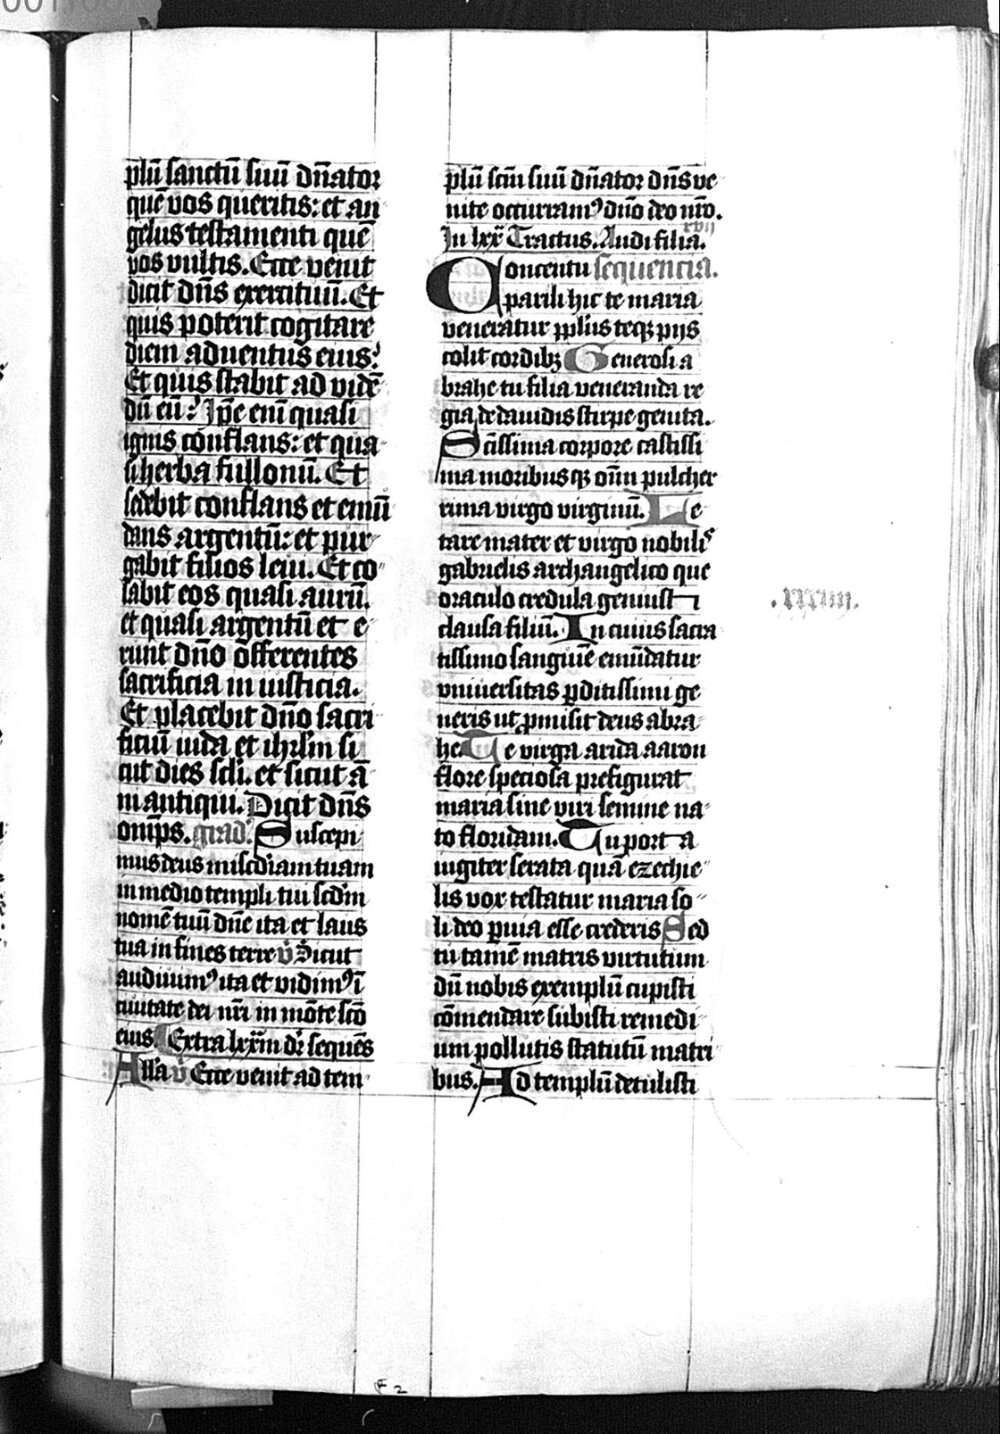 plū sanctū suū dn̄ator
quē vos queritis: et an
gelus testamenti quē
vos vultis. Ecce venit
dicit dn̄s exercituū. Et
quis poterit cogitare
diem aduentus eius?
Et quis stabit ad vidē
dū eū? Ip̄e eni᷃ quasi
ignis conflans: et qua
si herba fullonū. Et
sedebit conflans et emū
dans argentū: et pur
gabit filios leui. Et co
labit eos quasi aurū.
et quasi argentū et e
runt dn̄o offerentes
sacrificia in iusticia.
Et placebit dn̄o sacri
ficiū iuda et ihrl̄m si
cut dies scl̄i. et sicut ā
ni antiqui. Dicit dn̄s
om̄ps. grad̄. Suscepi
mus deus misc̄diam tuam
in medio templi tui scd̄m
nomē tuū dn̄e ita et laus
tua in fines terre v̄ Sicut
audiuim⁹ ita et vidim⁹ ī
ciuitate dei nr̄i in mōte scō
eius. Extra lxx̄m dr̄ sequēs
All̄a v̄ Ecce venit ad tem
plū scm̄ suū dn̄ator dn̄s ve
nite occurram⁹ dn̄o deo nr̄o.
In lxx̄ Tractus. Audi filia. xvii
Concentu sequencia.
parili hic te maria
veneratur ppl̄us teqꝫ pijs
colit cordibꝫ Generosi a
brahe tu filia veneranda re
gia de dauidis stirpe genita.
Sc̄issima corpore castissi
ma moribusqꝫ om̄i pulcher
rima virgo virginū. Le
tare mater et virgo nobilis
gabrielis archangelico que
oraculo credula genuisti
clausa filiū. In cuius sacra
tissimo sanguīe emūdatur
vniuersitas ꝑditissimi ge
neris ut ꝓmisit deus abra
he Te virga arida aaron
flore speciosa prefigurat
maria sine viri semine na
to floridam. Tu porta
iugiter serata quā ezechie
lis vox testatur maria so
li deo ꝑuia esse crederis Sed
tu tamē matris virtutum
dū nobis exemplū cupisti
cōmendare subisti remedi
um pollutis statutū matri
bus. Ad templū detulisti
F 2